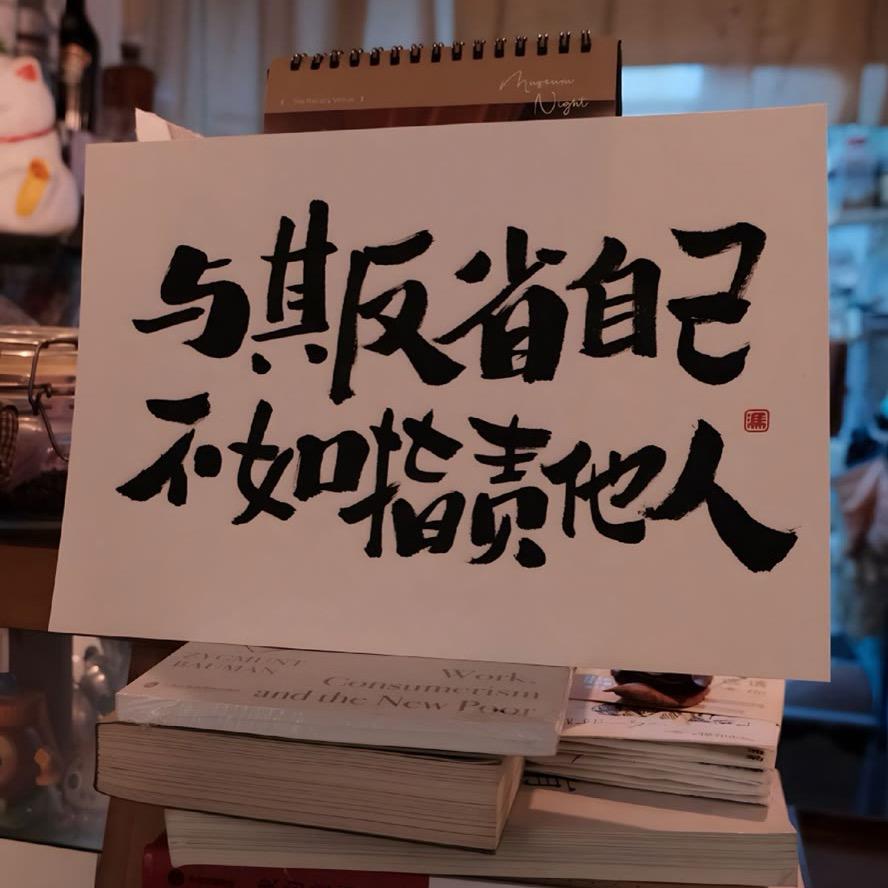 Museum
Night
与其反省自己
不如指责他人
ZYGMUNT
BAUMAN
Work,
Consumerism
and the New Poor